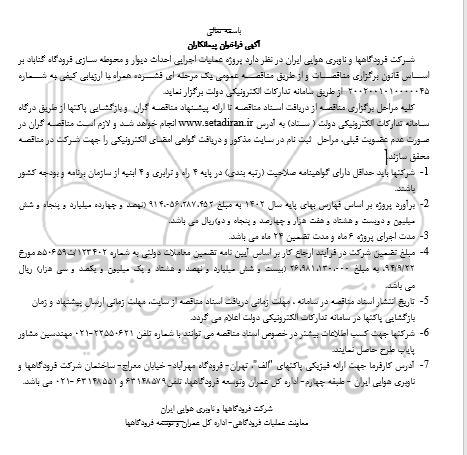 باسمه تعالی
آگهی فراخوان پیمانکاران
شرکت فرودگاهها و ناوبری هوایی ایران در نظر دارد پروژه عملیات اجرایی احداث دیوار و محوطه سازی فرودگاه گناباد بر
اساس قانون برگزاری مناقصات و از طریق مناقصه عمومی یک مرحله ای فشرده همراه با ارزیابی کیفی به شماره
۲۰۰۲۰۰۱۰۱۰۰۰۰۰۴۵ از طریق سامانه تدارکات الکترونیکی دولت برگزار نماید.
کلیه مراحل برگزاری مناقصه از دریافت اسناد مناقصه تا ارائه پیشنهاد مناقصه گران و بازگشایی پاکتها از طریق درگاه
سامانه تدارکات الکترونیکی دولت ( ستاد) به آدرس www.setadiran.ir انجام خواهد شد و لازم است مناقصه گران در
صورت عدم عضویت قبلی، مراحل ثبت نام در سایت مذکور و دریافت گواهی امضای الکترونیکی را جهت شرکت در مناقصه
محقق سازند.
1- شرکتها باید حداقل دارای گواهینامه صلاحیت (رتبه بندی) در پایه ۴ راه و ترابری و ۴ ابنیه از سازمان برنامه و بودجه کشور
باشند.
2- برآورد پروژه بر اساس فهارس بهای پایه سال ۱۴۰۲ به مبلغ ۹۱۴،۰۵۶،۲۸۷،۴۵۲ (نهصد و چهارده میلیارد و پنجاه و شش
میلیون و دویست و هشتاد و هفت هزار و چهارصد و پنجاه و دو)ریال می باشد.
3- مدت اجرای پروژه ۶ ماه و مدت تضمین ۲۴ ماه می باشد.
4- مبلغ تضمین شرکت در فرآیند ارجاع کار بر اساس آیین نامه تضمین معاملات دولتی به شماره ۱۲۳۴۰۲/ت۵۰۶۵۹ه مورخ
۹۴/۹/۲۲، به مبلغ ۲۶،۹۸۱،۱۳۰،۰۰۰ (بیست و شش میلیارد و نهصد و هشتاد و یک میلیون و یکصد و سی هزار) ریال
می باشد.
5- تاریخ انتشار اسناد مناقصه در سامانه ، مهلت زمانی دریافت اسناد مناقصه از سایت، مهلت زمانی ارسال پیشنهاد و زمان
بازگشایی پاکتها در سامانه تدارکات الکترونیکی دولت اعلام می گردد.
6- شرکتها جهت کسب اطلاعات بیشتر در خصوص اسناد مناقصه می توانند با شماره تلفن ۲۲۵۵۰۶۲۱-۰۲۱ مهندسین مشاور
پایاب طرح حاصل نمایند.
7- آدرس کارفرما جهت ارائه فیزیکی پاکتهای "الف"، تهران- فرودگاه مهرآباد- خیابان معراج- ساختمان شرکت فرودگاهها و
ناوبری هوایی ایران - طبقه چهارم- اداره کل عمران وتوسعه فرودگاهها، تلفن ۶۳۱۴۸۵۷۹ و ۶۳۱۴۸۵۵۱-۰۲۱ می باشد.
شرکت فرودگاهها و ناوبری هوایی ایران
معاونت عملیات فرودگاهی- اداره کل عمران و توسعه فرودگاهها